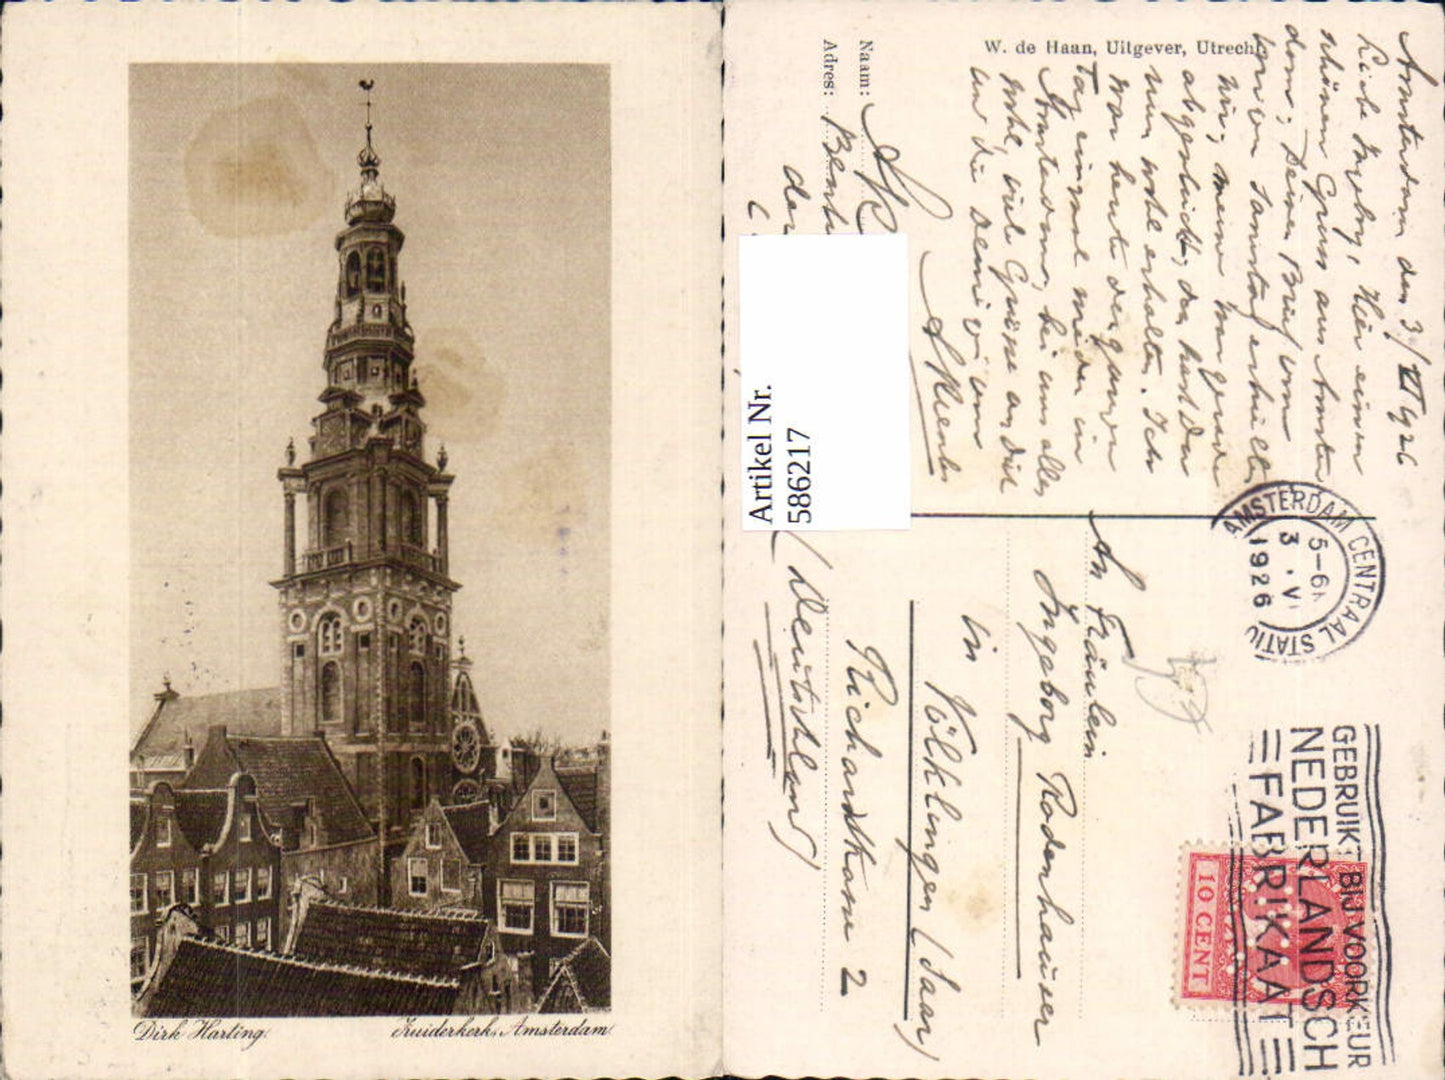 Dirk Harting.
Zuiderkerk, Amsterdam
W. de Haan, Uitgever, Utrecht
Naam:
Adres:
Artikel Nr.
586217
Amsterdam den 3/VI 1926
Liebe Ingeborg, Hier einen
schönen Gruss aus Amster
dam, Deinen Brief vom
vorigen Samstag erhielt
ich, meine
abgeschickt, den hast Du
nun wohl erhalten. Ich
war heute den ganzen
Tag einmal wieder in
Amsterdam, bei uns alles
wohl, viele Grüsse an Dich
und die Deinigen von
An Fräulein
Ingeborg Rodenhauser
in Völklingen (Saar)
Richardstrasse 2
(Deutschland)
AMSTERDAM CENTRAAL STATIO
5-6
3.VI
1926
GEBRUIKT BIJ VOORKEUR
NEDERLANDSCH
FABRIKAAT
10 CENT